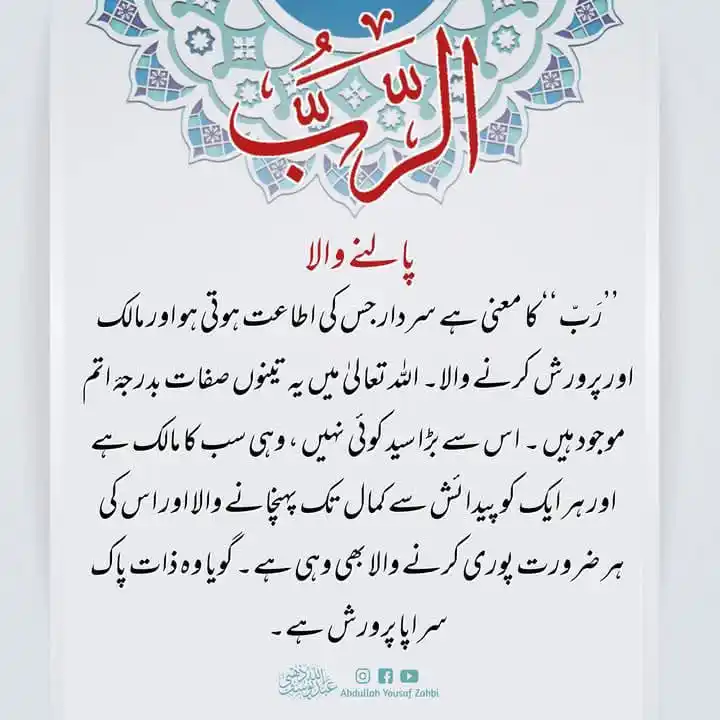 الرَّبُّ
پالنے والا
’’رَبّ‘‘ کا معنی ہے سردار جس کی اطاعت ہوتی ہو اور مالک
اور پرورش کرنے والا۔ اللہ تعالیٰ میں یہ تینوں صفات بدرجۂ اتم
موجود ہیں ۔ اس سے بڑا سید کوئی نہیں ، وہی سب کا مالک ہے
اور ہر ایک کو پیدائش سے کمال تک پہنچانے والا اور اس کی
ہر ضرورت پوری کرنے والا بھی وہی ہے ۔ گویا وہ ذات پاک
سراپا پرورش ہے ۔
عبداللہ یوسف ذہبی
Abdullah Yousaf Zahbi